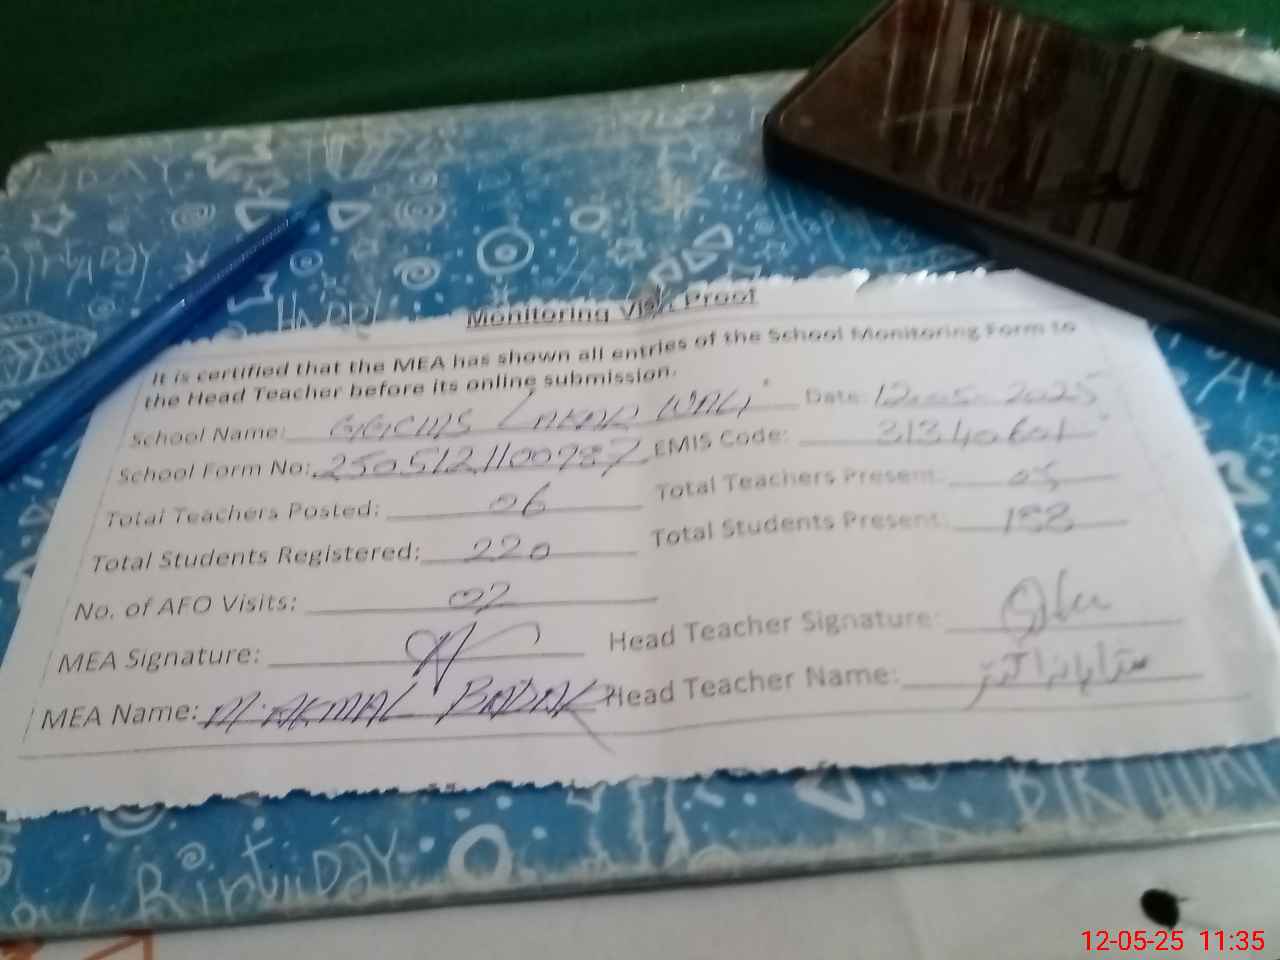 Monitoring Visit Proof
It is certified that the MEA has shown all entries of the School Monitoring Form to
the Head Teacher before its online submission.
School Name: GGCMS LAKAR WALI Date: 12-05-2025
School Form No: 2505121100987 EMIS Code: 31340601
Total Teachers Posted: 06 Total Teachers Present: 05
Total Students Registered: 220 Total Students Present: 188
No. of AFO Visits: 02
MEA Signature: Head Teacher Signature:
MEA Name: M. AKMAL Head Teacher Name:
BIRTHDAY
HAPPY
BirthDAY
BIRTHDAY
12-05-25 11:35